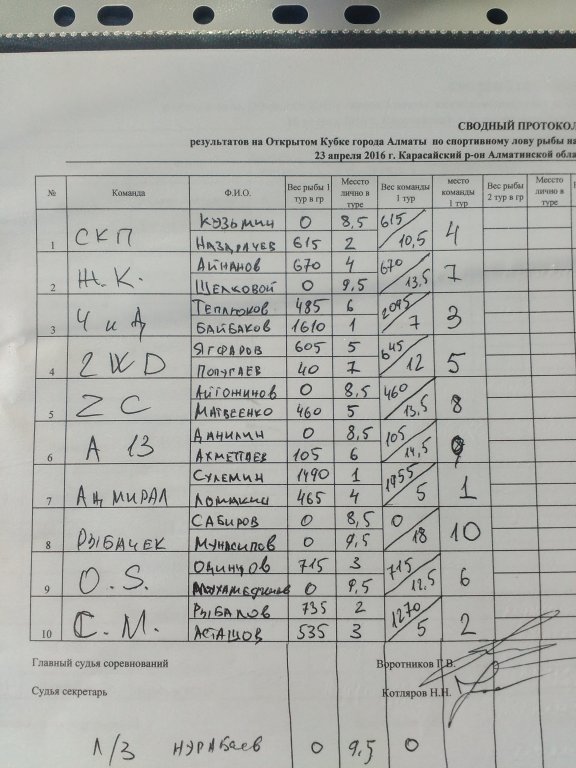 СВОДНЫЙ ПРОТОКОЛ
результатов на Открытом Кубке города Алматы по спортивному лову рыбы на
23 апреля 2016 г. Карасайский р-он Алматинской обла
№ Команда Ф.И.О. Вес рыбы 1 тур в гр Месcто лично в туре Вес команды 1 тур место команды 1 тур Вес рыбы 2 тур в гр Место лично в туре
1 СКП Кузьмин 0 8,5 615/10,5 4
Назарачев 615 2
2 Ж.К. Айнанов 670 4 670/13,5 7
Щелковой 0 9,5
3 Ч и Д Теплюков 485 6 2095/7 3
Байбаков 1610 1
4 2WD Ягфаров 605 5 645/12 5
Попугаев 40 7
5 ZC Айтожинов 0 8,5 460/13,5 8
Матвеенко 460 5
6 А 13 Данилин 0 8,5 105/14,5 9
Ахметпаев 105 6
7 Адмирал Сулемин 1490 1 1955/5 1
Ломакин 465 4
8 Рыбачек Сабиров 0 8,5 0/18 10
Мунасипов 0 9,5
9 O.S. Одинцов 715 3 715/12,5 6
Мухамедчинов 0 9,5
10 С.М. Рыбалов 735 2 1270/5 2
Асташов 535 3
Главный судья соревнований Воротников Г.В.
Судья секретарь Котляров Н.Н.
Л/З Нурабаев 0 9,5 0